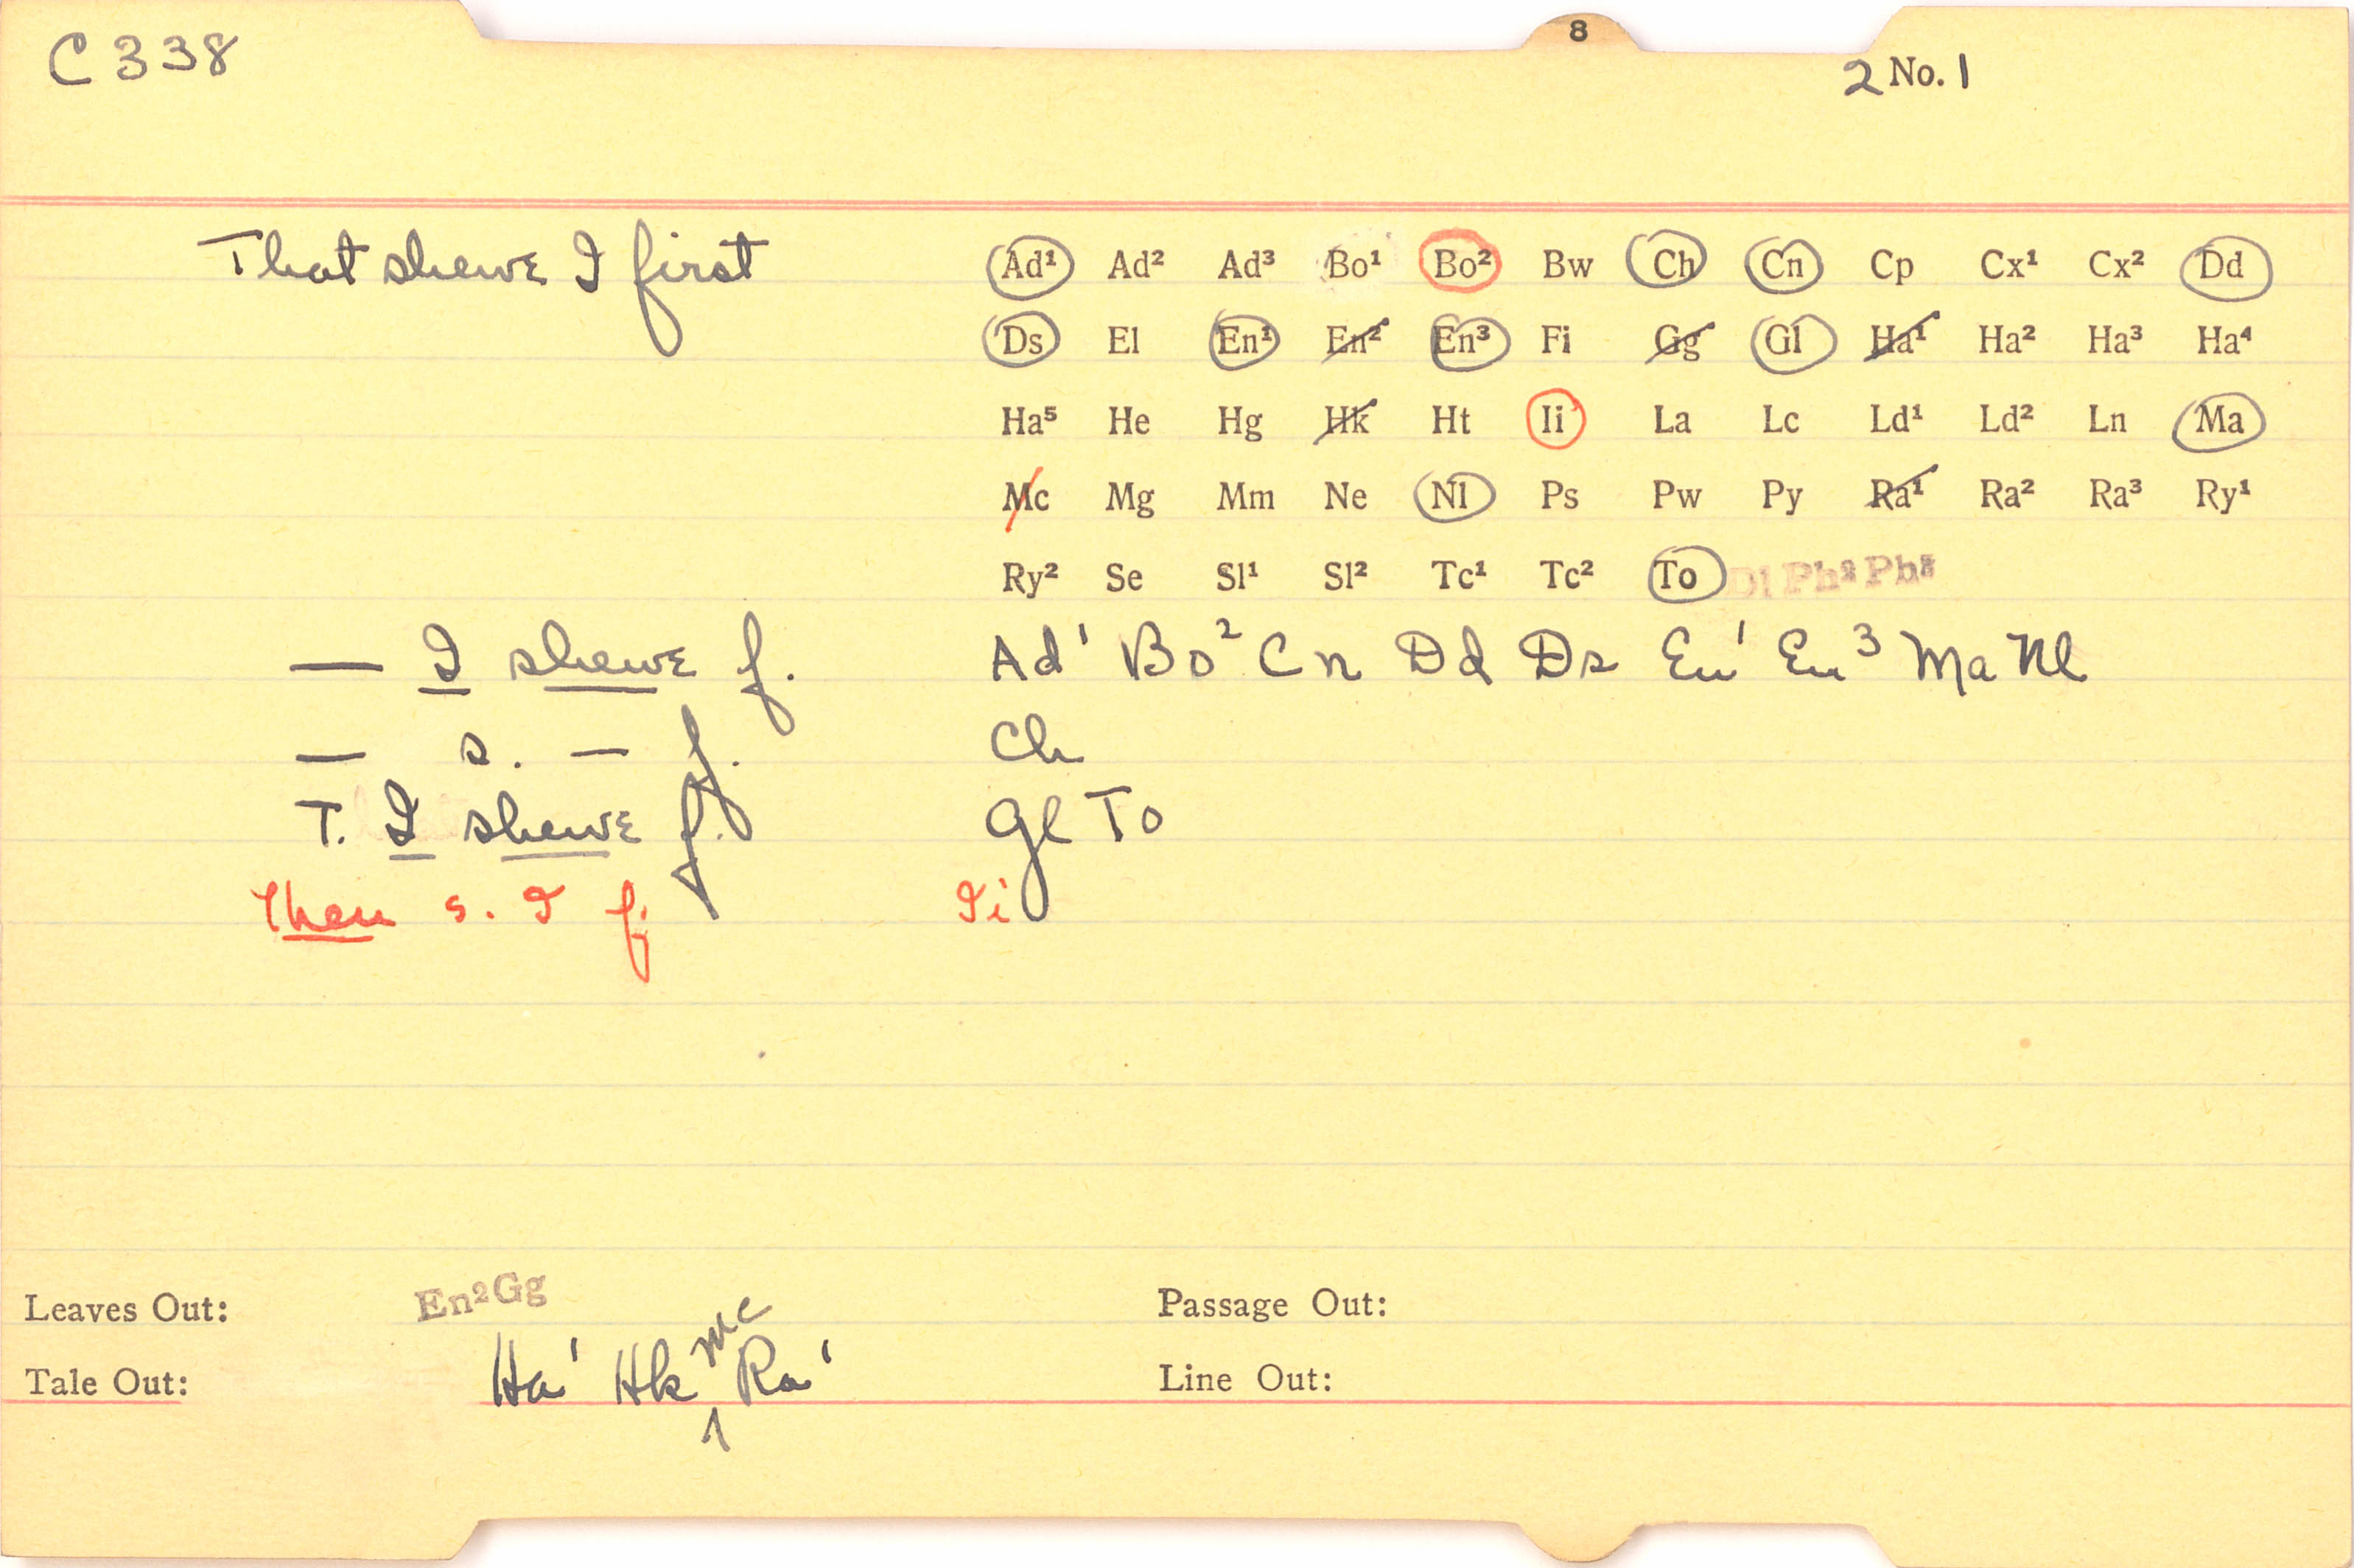 8
C 338
2 No. 1
That shewe I first
Ad¹ Ad² Ad³ Bo¹ Bo² Bw Ch Cn Cp Cx¹ Cx² Dd
Ds El En¹ En² En³ Fi Gg Gl Ha¹ Ha² Ha³ Ha⁴
Ha⁵ He Hg Hk Ht Ii La Lc Ld¹ Ld² Ln Ma
Mc Mg Mm Ne Nl Ps Pw Py Ra¹ Ra² Ra³ Ry¹
Ry² Se Sl¹ Sl² Tc¹ Tc² To Dl Ph² Ph³
— I shewe f. Ad¹ Bo² Cn Dd Ds En¹ En³ Ma Nl
— s. — f. Ch
T. I shewe f. Gl To
Then s. I f. Ii
Leaves Out: En²Gg Passage Out:
Tale Out: Ha¹ Hk Mc Ra¹ Line Out: